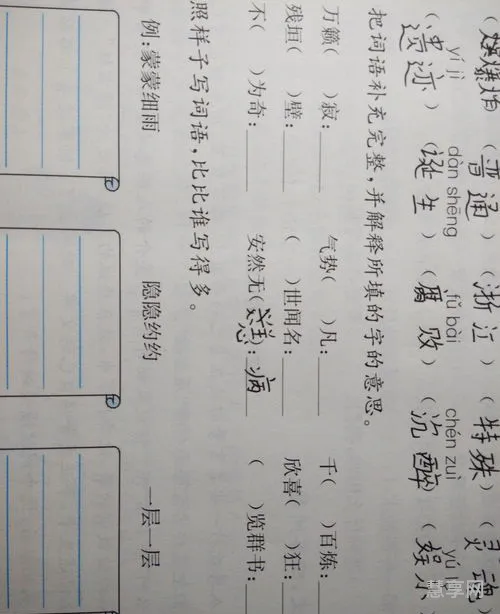 (爆炸)(普通)(浙江)(特殊)(灵魂
yí jì dàn shēng fǔ bài chén zuì yú
(遗迹)(诞生)(腐败)(沉醉)(
把词语补充完整,并解释所填的字的意思。
万籁( )寂:______ 气势( )凡:______ 千( )百炼:
残垣( )壁:______ ( )世闻名:______ 欣喜( )狂:
不( )为奇:______ 安然无(恙):病 ( )览群书:
照样子写词语,比比谁写得多。
例:蒙蒙细雨 隐隐约约 一层一层
慧享网